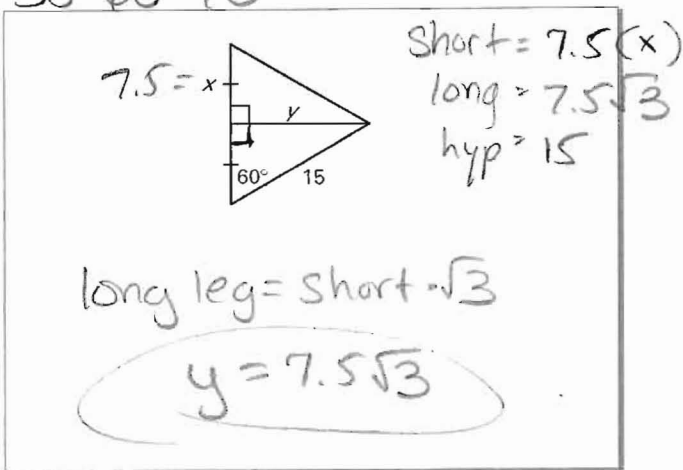 7.5 = x
y
60° 15
Short = 7.5 (x)
long = 7.5√3
hyp = 15
long leg = short · √3
y = 7.5√3